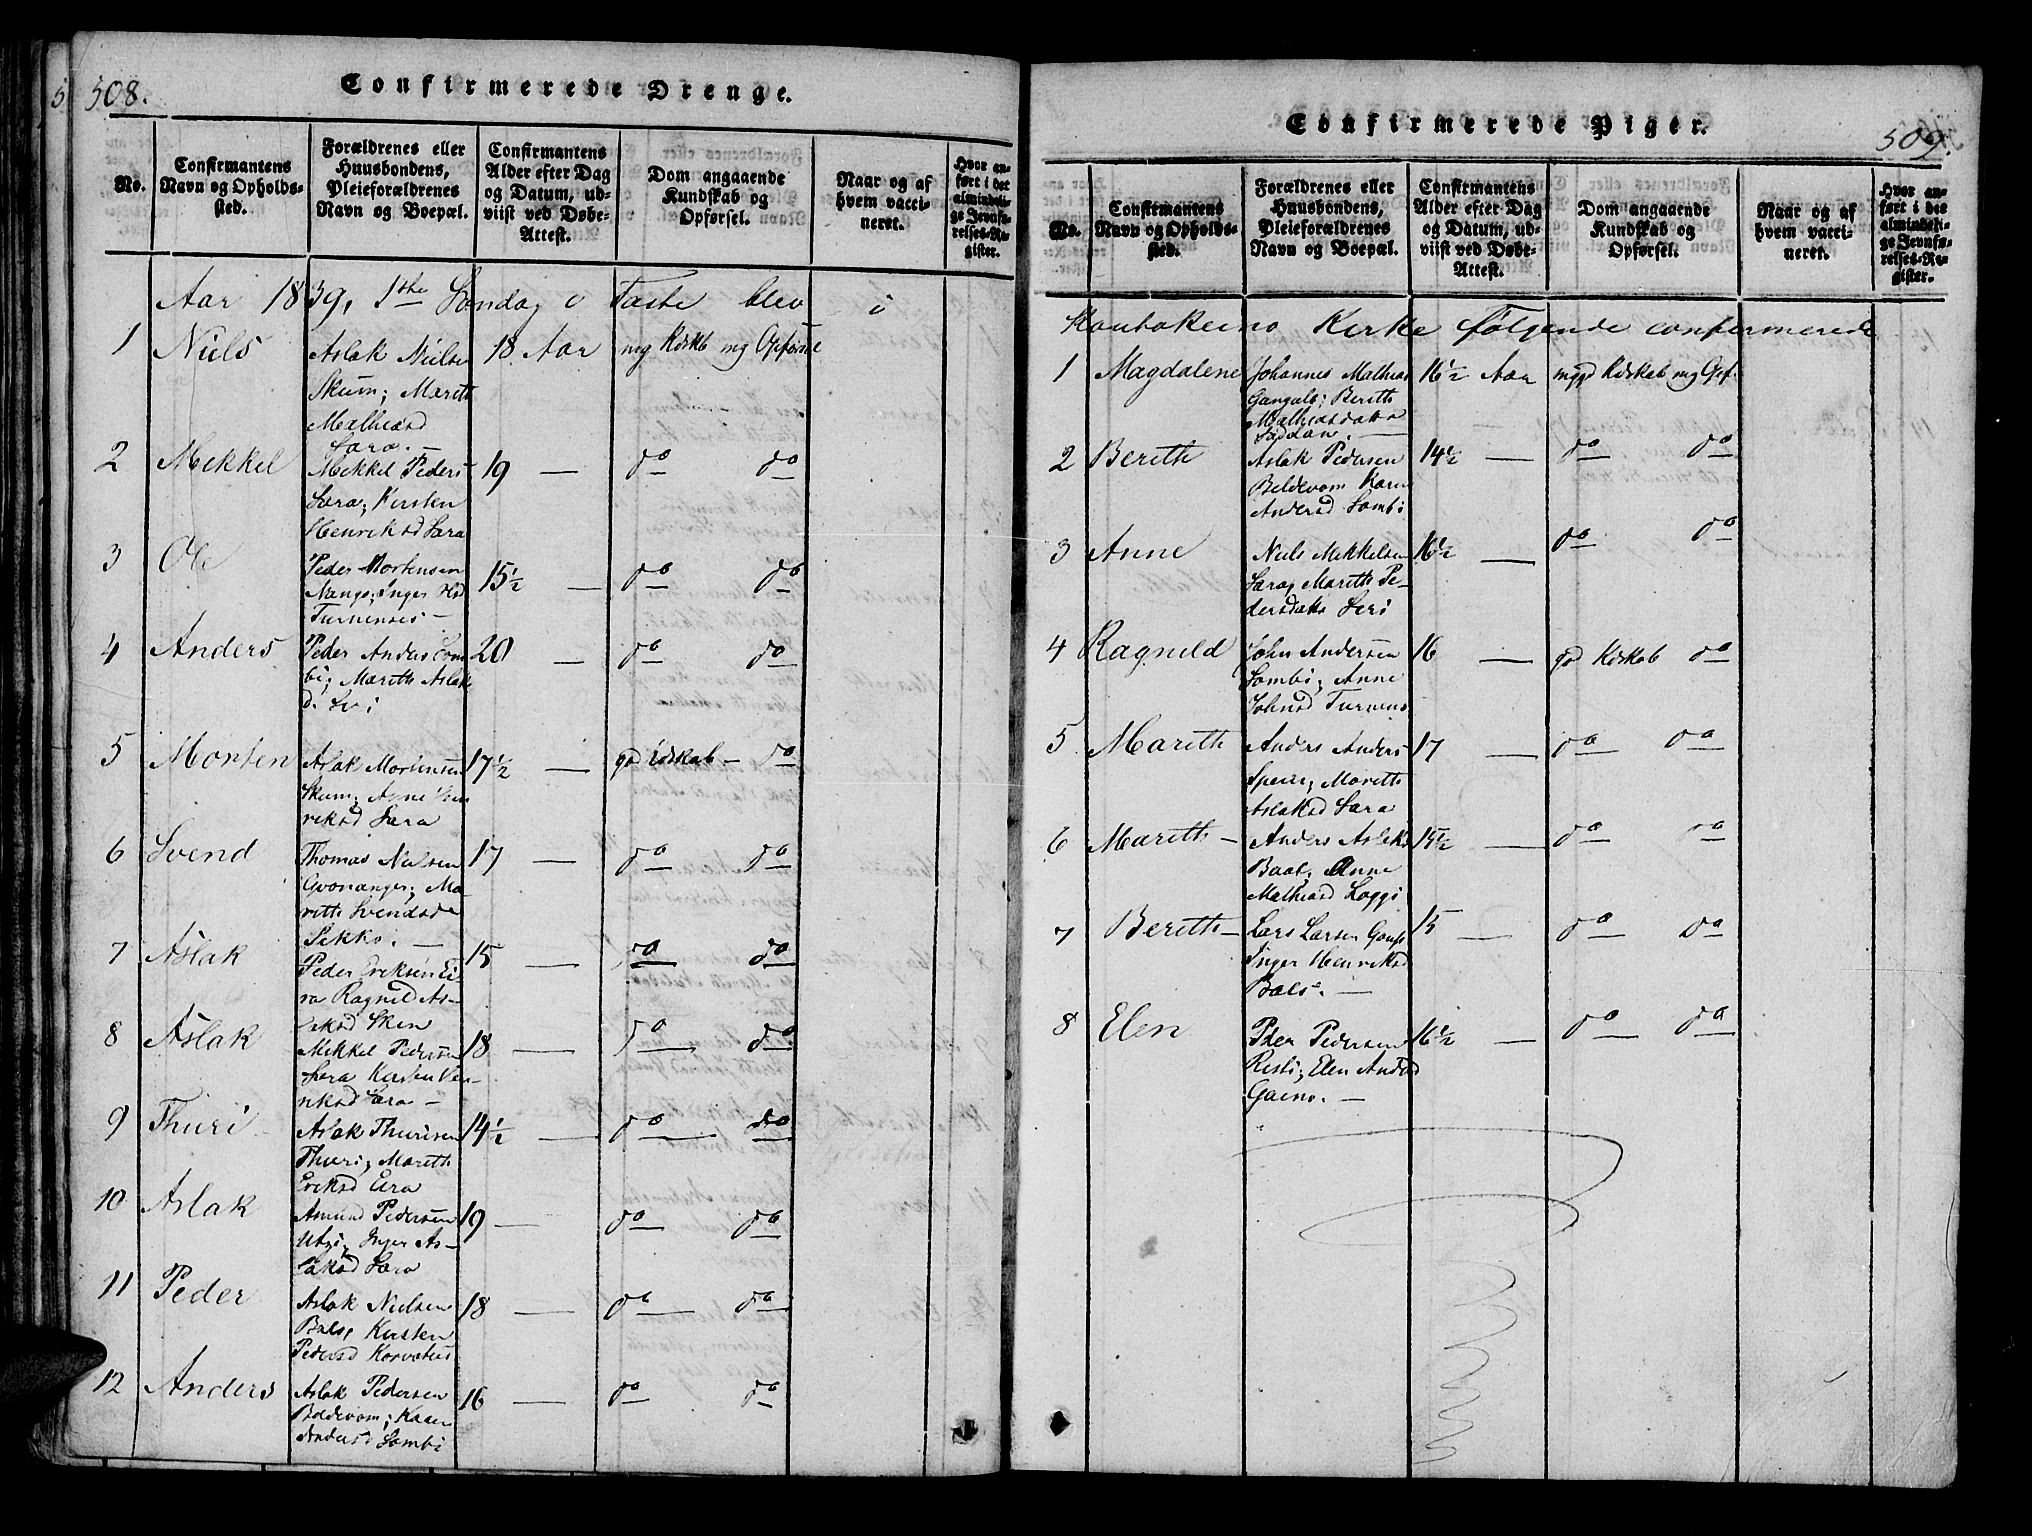 508.
Confirmerede Drenge.
No.
Confirmantens
Navn og Opholds-
sted.
Forældrenes eller
Huusbondens,
Pleieforældrenes
Navn og Boepæl.
Confirmantens
Alder efter Dag
og Datum, ud-
viist ved Døbe-
Attest.
Dom angaaende
Kundskab og
Opførsel.
Naar og af
hvem vacci-
neret.
Hvor an-
ført i det
almindeli-
ge Jevnfø-
relses-Re-
gister.
Aar 1839, 1ste Søndag i Faste blev i
1 Niels
Aslak Nielsen
Skum; Mareth
Mathiasd
Sara. —
18 Aar
mg Kdskb mg Opførsel
2 Mekkel
Mekkel Peders
Sara; Kirsten
Henriksd Sara
19 — do do
3 Ole
Peder Mortensen
Nango; Inger
Turnensis —
15½ — do do
4 Anders
Peder Anders Som
bi; Mareth Aslak
d.
20 — do do
5 Morten
Aslak Mortensen
Skum; Anne Hen
riksd Sara
17½ — gd Kdskab — do
6 Svend
Thomas Nielsen
Qvonanger; Ma
reth Svendsd
Pekko. —
17 — do do
7 Aslak
Peder Eriksen Ei
ra Ragnild As-
laksd Sken
15 — do do
8 Aslak
Mekkel Pedersen
Sara Kirsten Hen-
riksd Sara —
18 — do do
9 Thuri
Aslak Thurisen
Thuri; Mareth
Eriksd Eira
14½ — do do
10 Aslak
Asmund Pedersen
Utsi; Inger As-
laksd Sara
19 — do do
11 Peder
Aslak Nielsen
Bals; Kirsten
Pedersd Korvatus
18 — do do
12 Anders
Aslak Pedersen
Beldevom; Karen
Andersd Sombi
16 — do do
509.
Confirmerede Piger.
No.
Confirmantens
Navn og Opholds-
sted.
Forældrenes eller
Huusbondens,
Pleieforældrenes
Navn og Boepæl.
Confirmantens
Alder efter Dag
og Datum, ud-
viist ved Døbe-
Attest.
Dom angaaende
Kundskab og
Opførsel.
Naar og af
hvem vacci-
neret.
Hvor an-
ført i det
almindeli-
ge Jevnfø-
relses-Re-
gister.
Koutokeino Kirke følgende confirmerede
1 Magdalene
Johannes Mathias
Gaugals; Bereth
Mathiasdatter
16½ Aar mgd Kdskab mg Opf.
2 Bereth
Aslak Pedersen
Beldevom Karen
Andersd Sombi
14½ — do do
3 Anne
Niels Mekkelsen
Sara; Mareth Pe-
dersdatt Siri
16½ — do do
4 Ragnild
John Andersen
Sombi; Anne
Johnsd Turnens
16 — gd Kdskab do
5 Mareth
Anders Anders
Spein; Mareth
Aslaksd Sara
17 — do do
6 Mareth —
Anders Aslaks
Baal; Anne
Mathiasd Loggi
15½ — do do
7 Bereth —
Lars Larsen Gaup
Inger Henriksd
Bals. —
15 — do do
8 Elen
Peder Pedersen
Risti; Elen Andsd
Gaino. —
16½ — do do